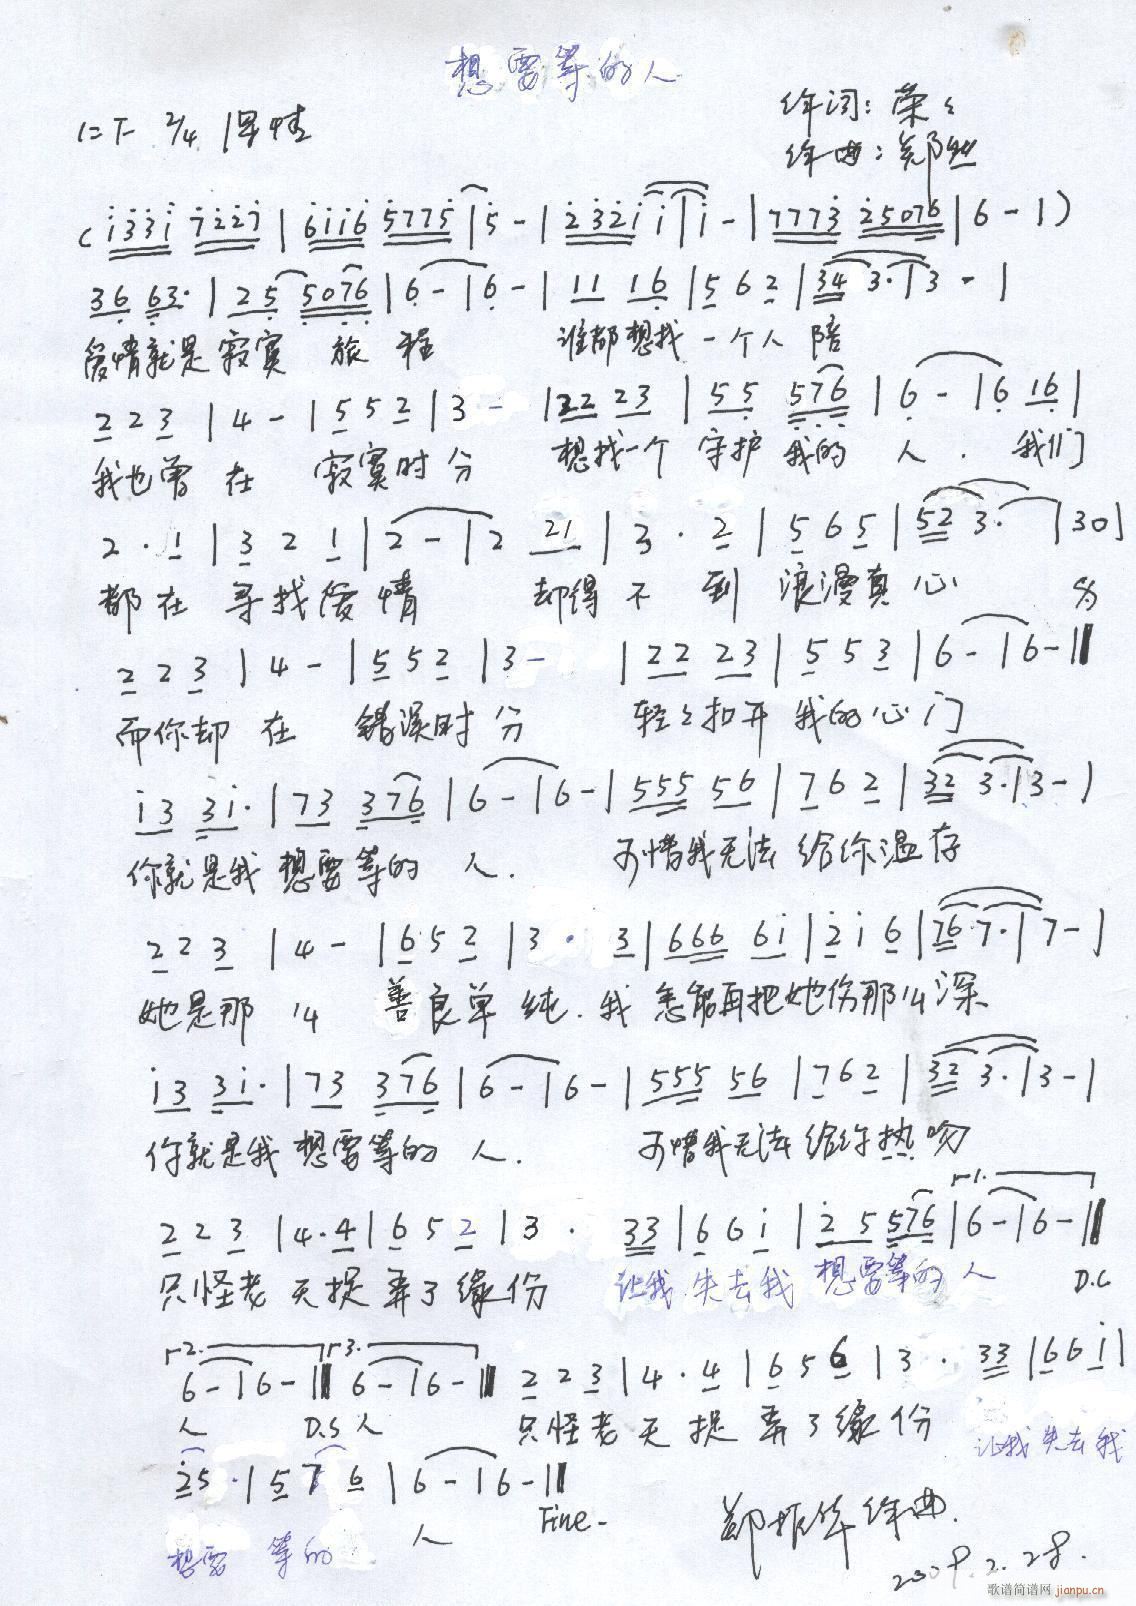 想要等的人
1=F 2/4 深情
作词：荣荣
作曲：郑然
(i33i 7227|6116 5775|5-|2321 i|i-|7773 25076|6-|)
36 63·|25 5076|6-|6-|11 16|562|34 3·|3-|
爱情就是寂寞 旅 程 谁都想找一个人陪
223|4-|552|3-|22 23|55 576|6-|6 16|
我也曾在 寂寞时分 想找一个守护我的 人. 我们
2·1|321|2-|2 21|3·2|565|52 3·|30|
都在寻找爱情 却得不到浪漫真心
223|4-|552|3-|22 23|553|6-|6-||
而你却在 错误时分 轻轻扣开我的心门
i3 3i·|73 376|6-|6-|555 56|762|32 3·|3-|
你就是我想要等的 人. 可惜我无法给你温存
223|4-|652|3·3|666 6i|2i6|76 7·|7-|
她是那么 善良单纯.我怎能再把她伤那么深
i3 3i·|73 376|6-|6-|555 56|762|32 3·|3-|
你就是我想要等的 人. 可惜我无法给你热吻
1.
223|4·4|652|3· 33|66i|25 576|6-|6-||
只怪老天捉弄了缘份 让我失去我想要等的人 D.C
2. 3.
6-|6-||6-|6-|| 223|4·4|656|3· 33|66i|
人 D.S 人 只怪老天捉弄了缘份 让我失去我
25·|576|6-|6-||
想要等的 人 Fine-
郑振华作曲.
2009.2.28.
歌谱简谱网 jianpu.cn